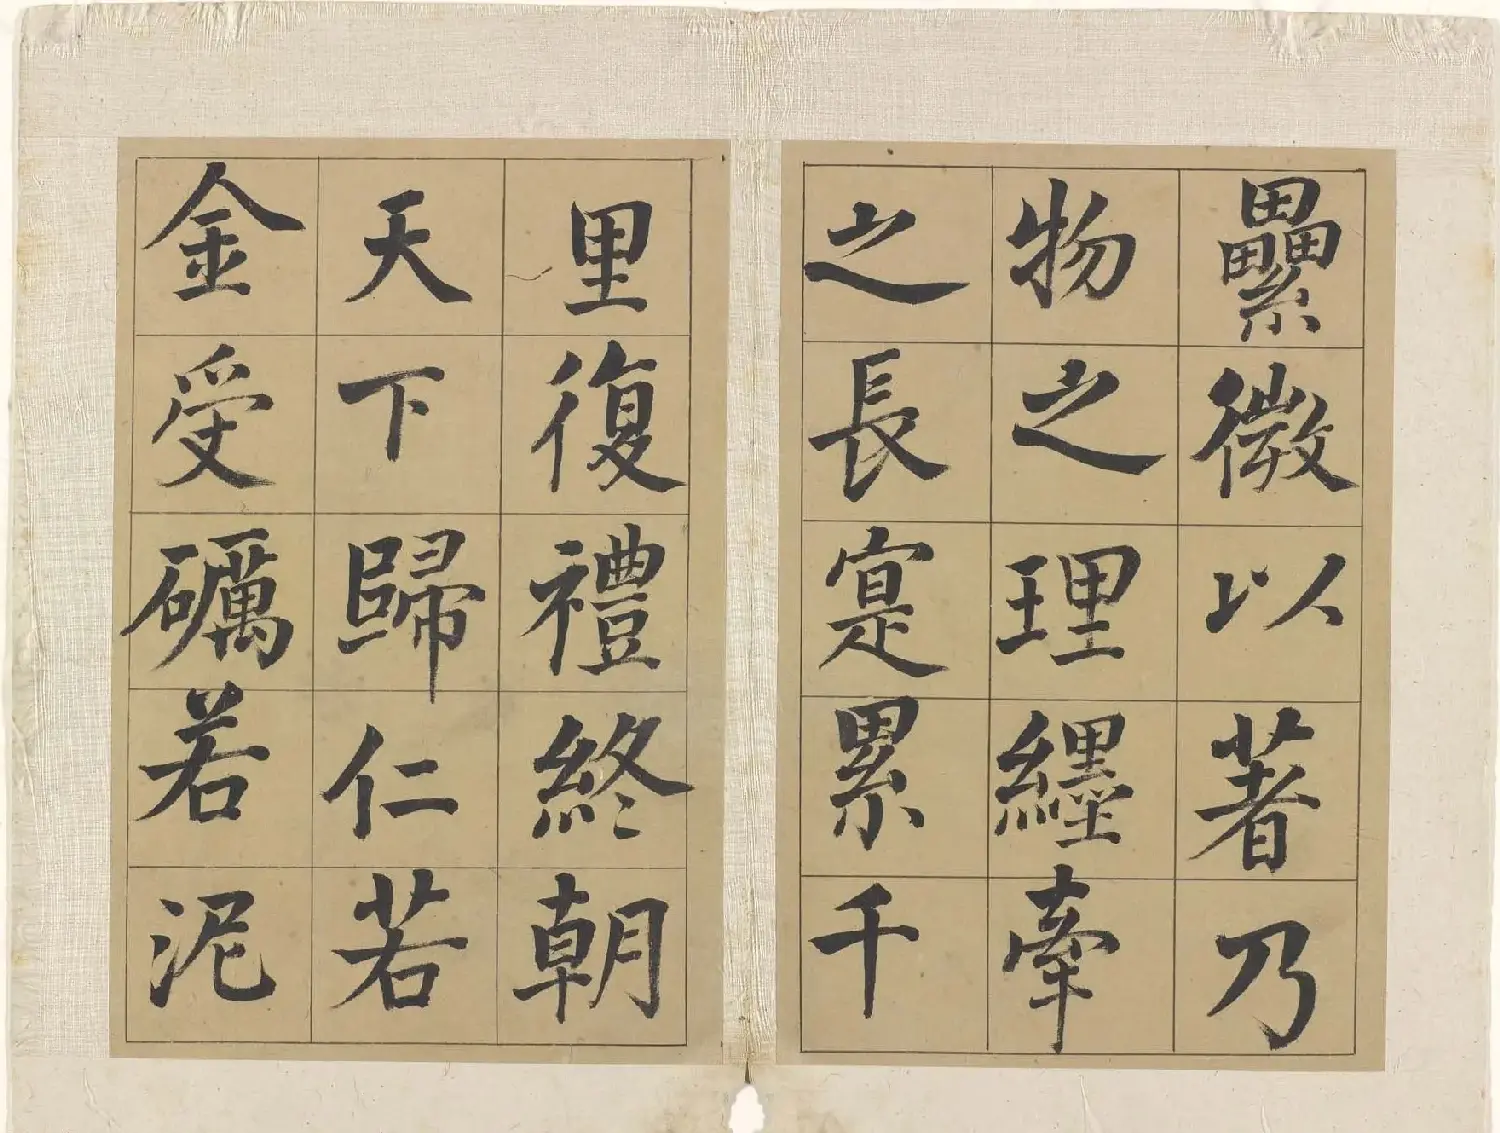 纍微以著乃
物之理纆牽
之長寔累千
里復禮終朝
天下歸仁若
金受礪若泥